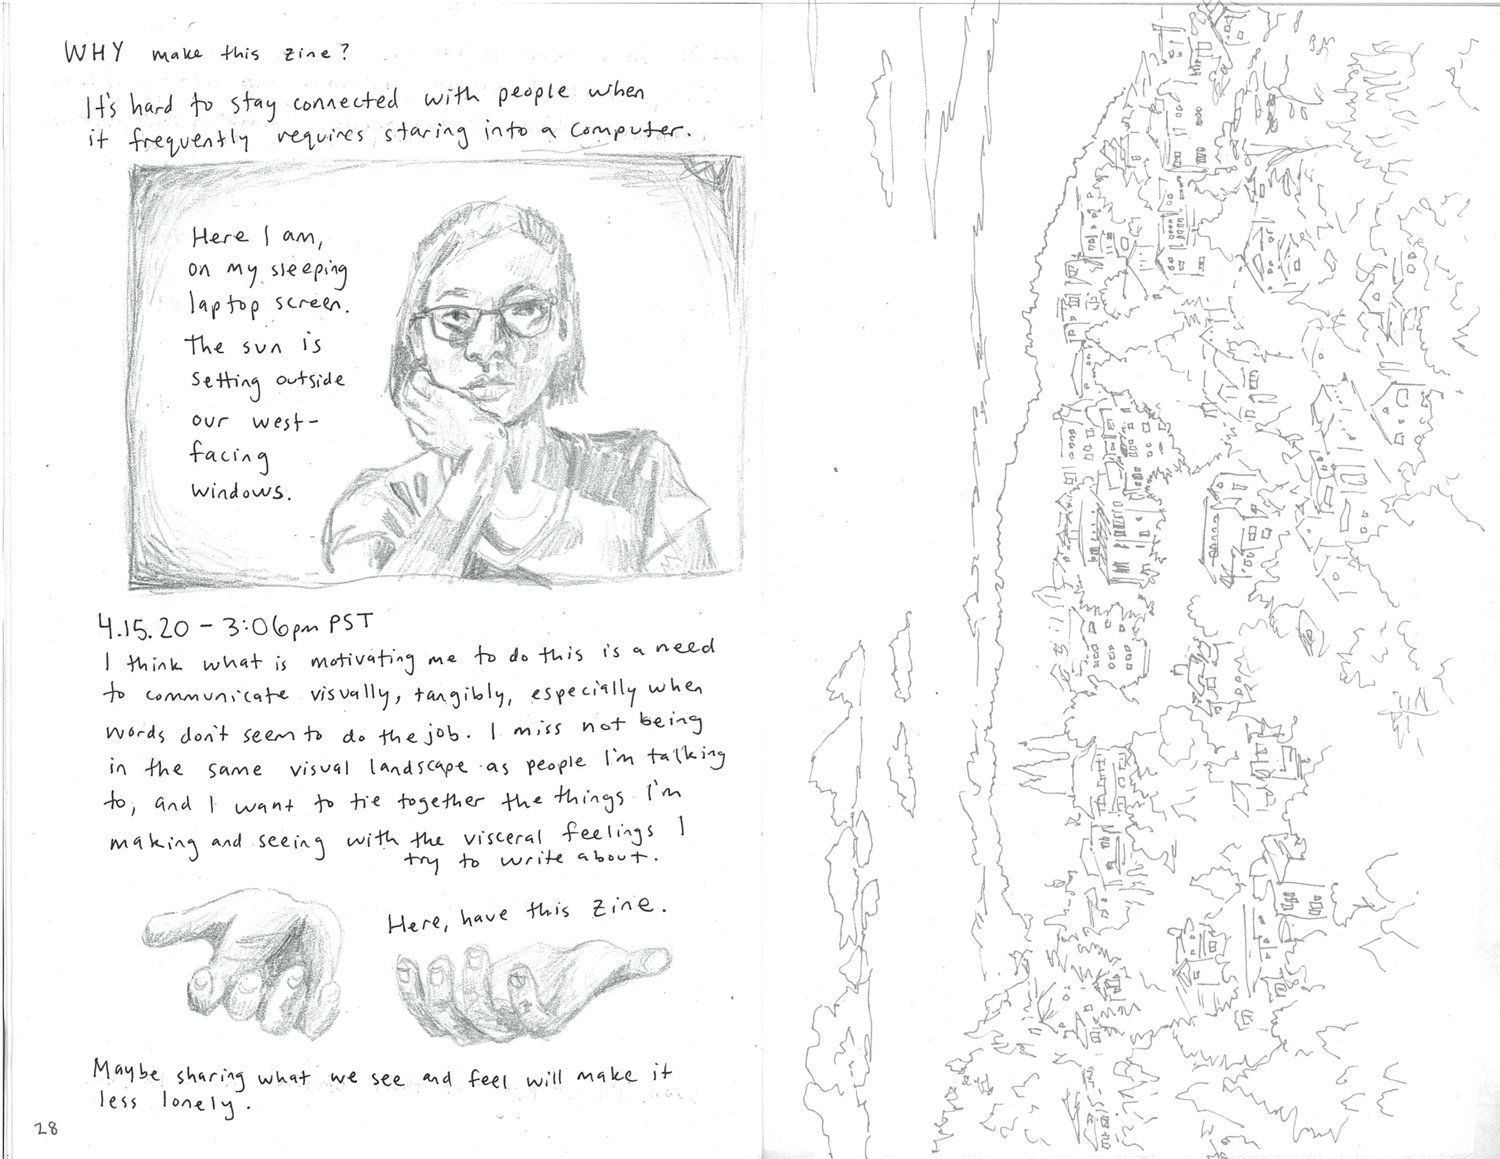 WHY make this zine?
It's hard to stay connected with people when
it frequently requires staring into a computer.
Here I am,
on my sleeping
laptop screen.
The sun is
setting outside
our west-
facing
windows.
4.15.20 - 3:06pm PST
I think what is motivating me to do this is a need
to communicate visually, tangibly, especially when
words don't seem to do the job. I miss not being
in the same visual landscape as people I'm talking
to, and I want to tie together the things I'm
making and seeing with the visceral feelings I
try to write about.
Here, have this zine.
Maybe sharing what we see and feel will make it
less lonely.
28